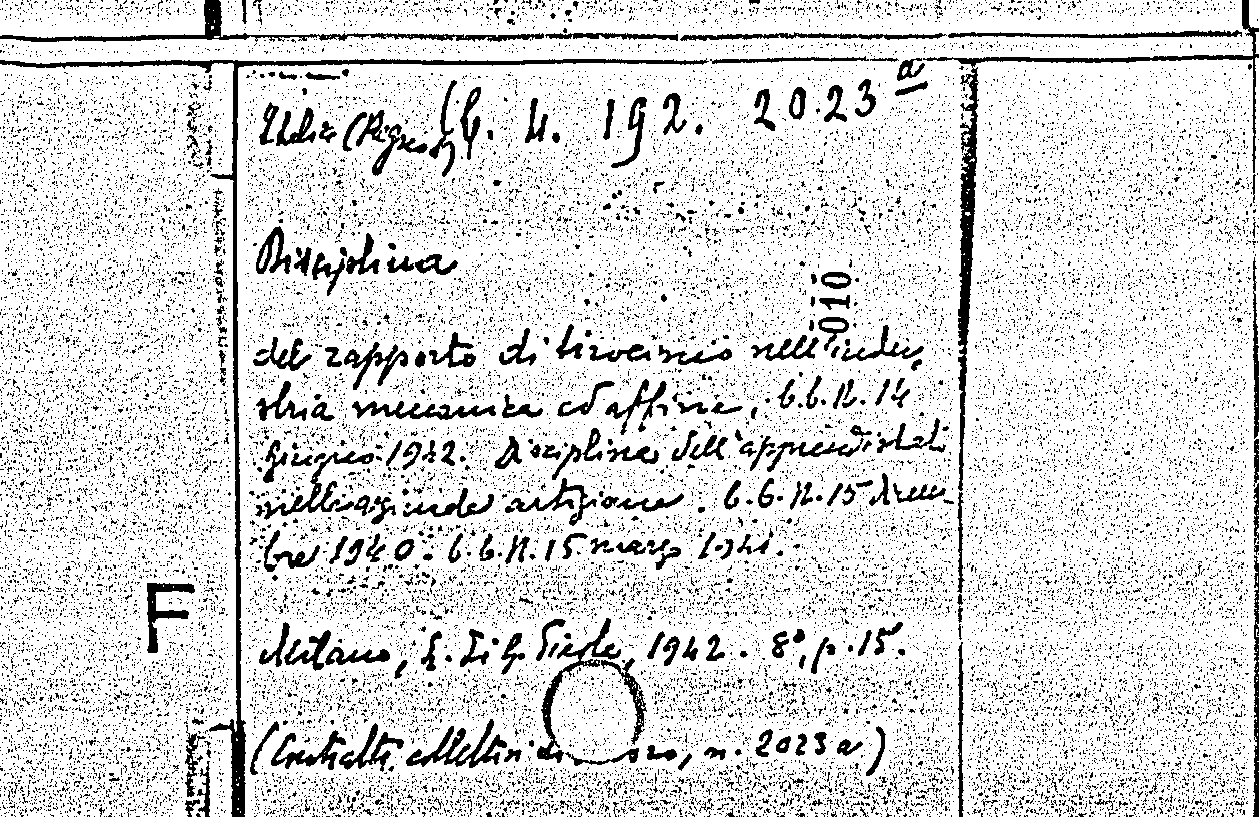 Italia (Regno) G. 4. 192. 2023 a
Disciplina
010
del rapporto di tirocinio nell'indu-
stria meccanica ed affine, C.C.N. 14
giugno 1942. Disciplina dell'apprendistato
nelle aziende artigiane. C.C.N. 15 dicem-
bre 1940. C.C.N. 15 marzo 1941.
F
Milano, L. di G. Pirola, 1942. 8°, p. 15.
(Contratti collettivi di n. 2023 a)